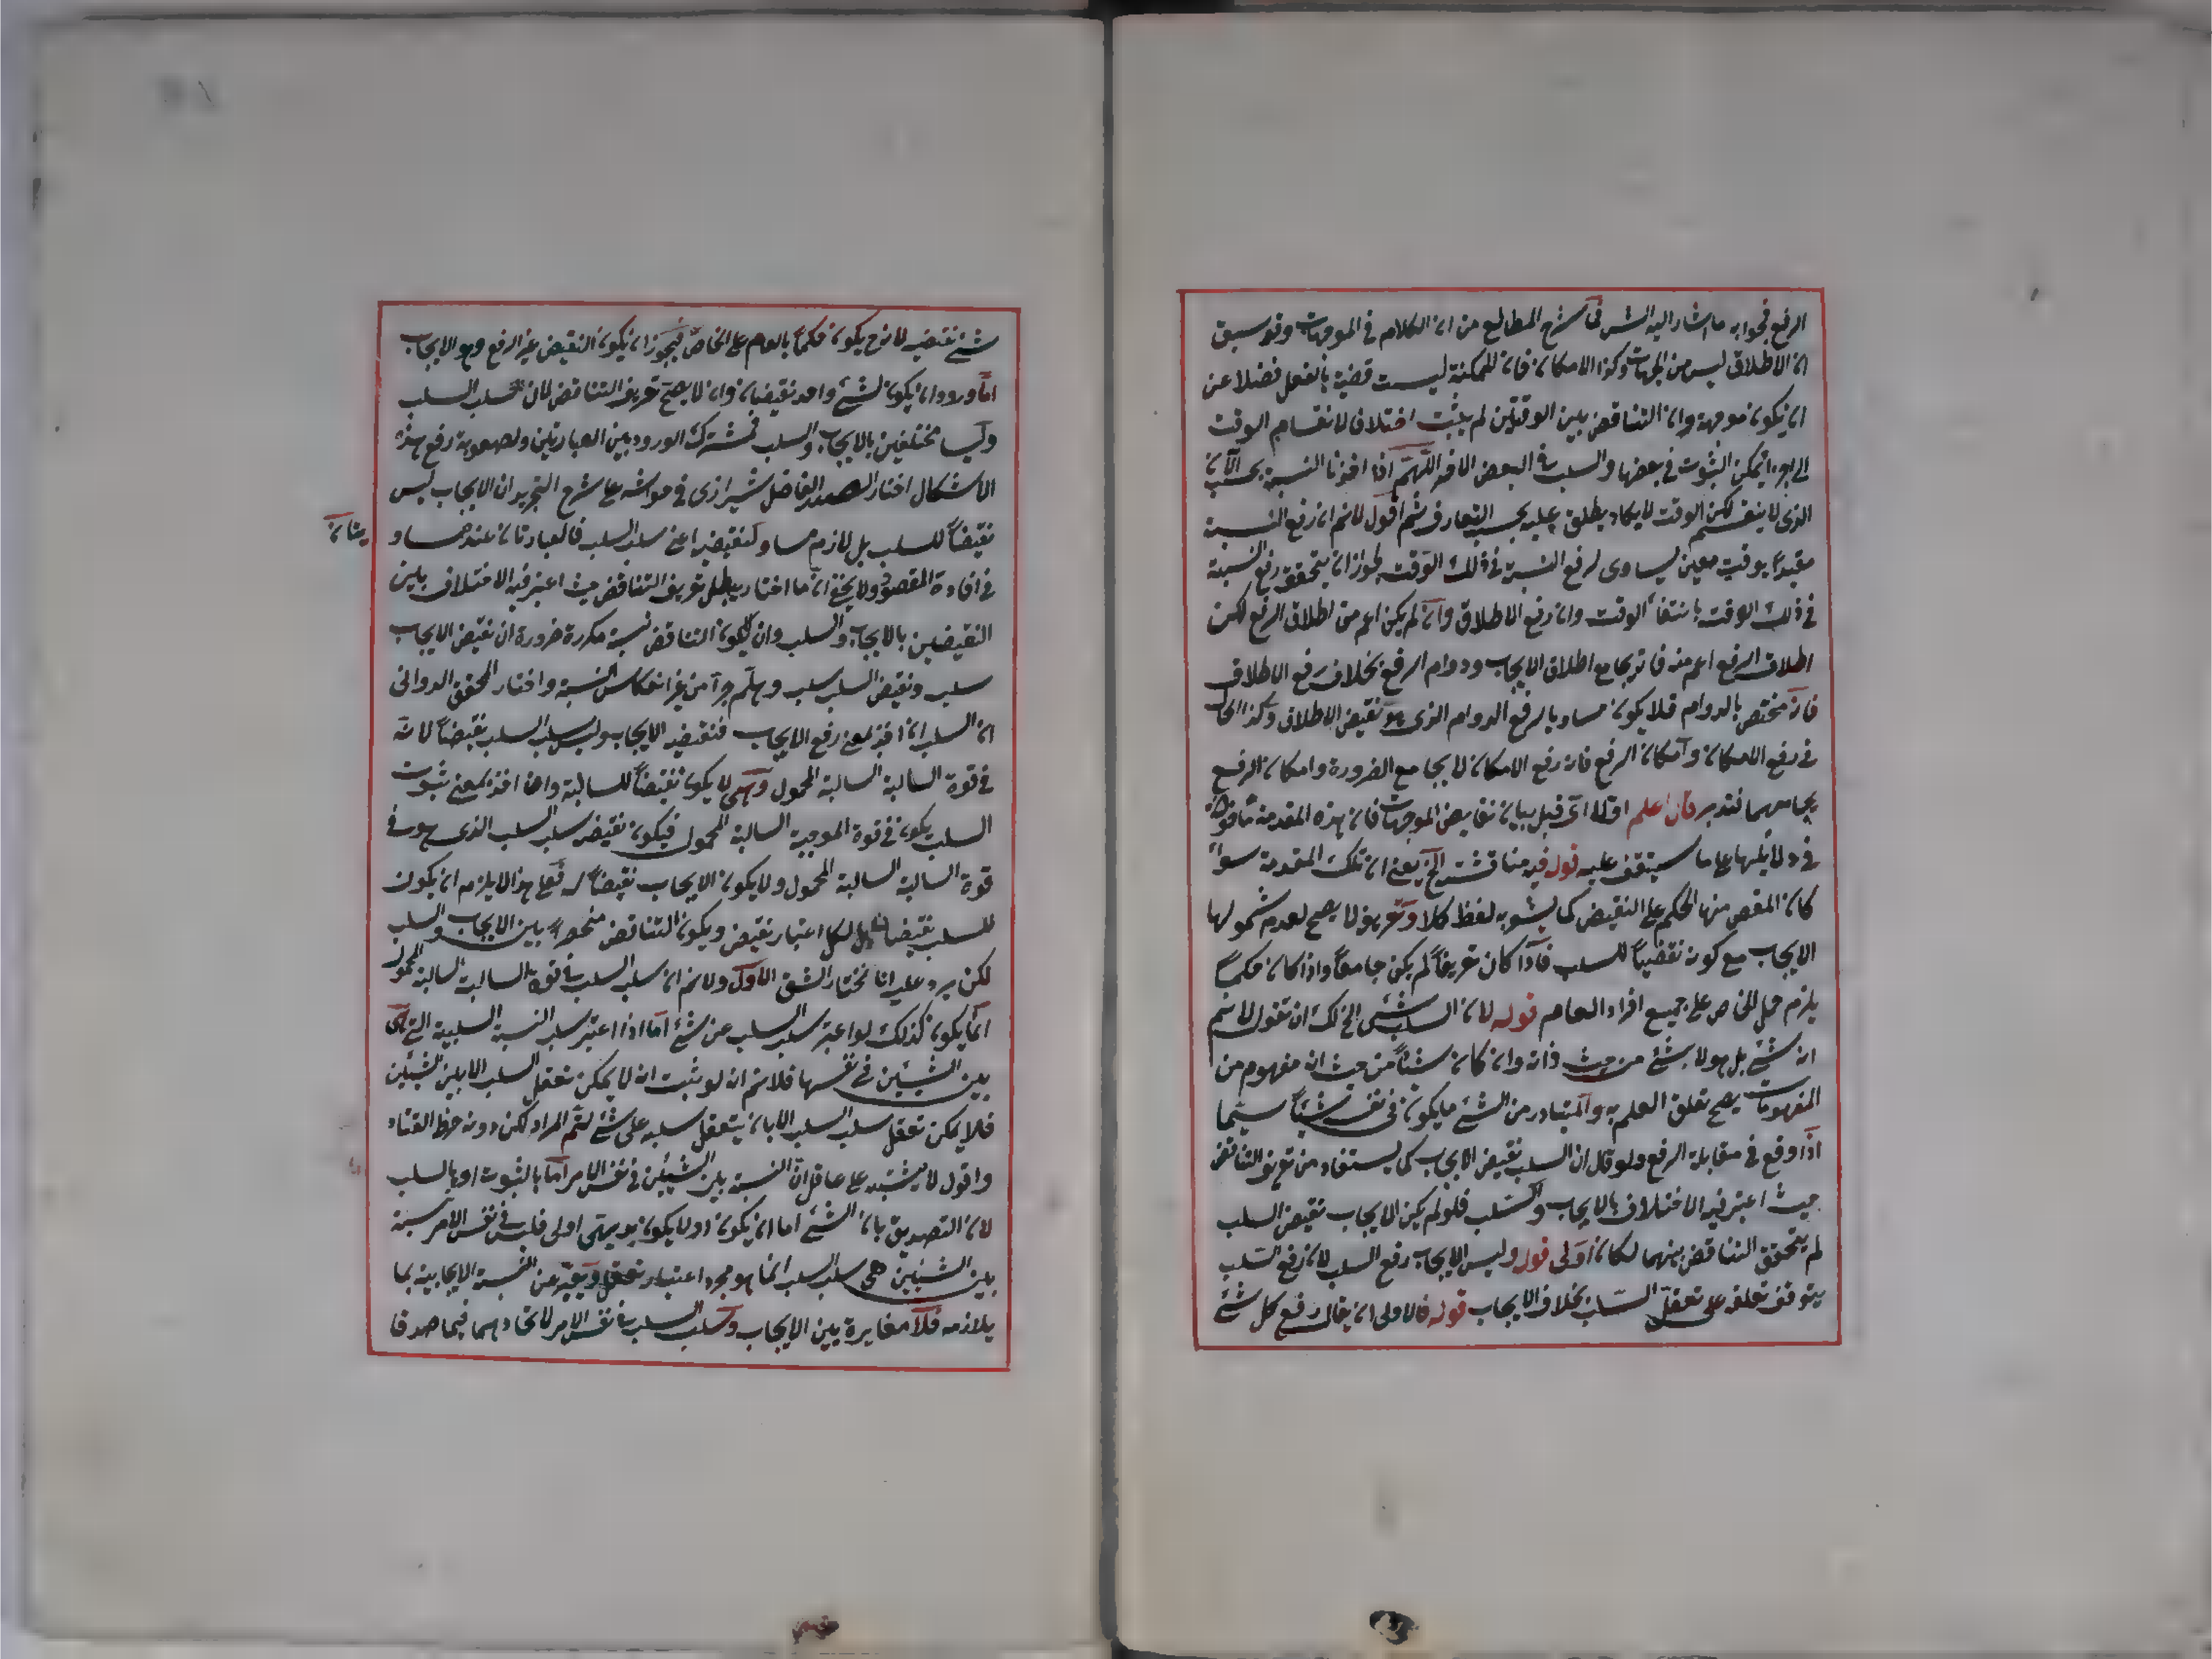 الرفع فجوابه ما اشار اليه الش فى شرح المطالع من ان الكلام فى الموجهات وقد سبق
ان الاطلاق ليس من الجهات وكذا الامكان فان الممكنة ليست قضية بالفعل فضلا عن
ان يكون موجهة وان التناقض بين الوقتيتين لم يثبت اختلاف لانقسام الوقت
الى اجزاء يمكن الثبوت فى بعضها والسلب فى البعض الاخر اللهم اذا اخذنا النسبة بحسب الآن
الذى لا ينقسم لكن الوقت لا يكاد يطلق عليه بحسب التعارف ثم اقول لانم ان رفع النسبة
مقيدا بوقت معين يساوى لرفع النسبة فى ذلك الوقت لجواز ان يتحقق رفع النسبة
فى ذلك الوقت بانتفاء الوقت وان رفع الاطلاق وان لم يكن اعم من اطلاق الرفع لكن
اطلاق الرفع اعم منه فانه يجامع اطلاق الايجاب ودوام الرفع بخلاف رفع الاطلاق
فانه مختص بالدوام فلا يكون مساويا لرفع الدوام الذى هو نقيض الاطلاق وكذا الحال
فى رفع الامكان وامكان الرفع فان رفع الامكان لا يجامع الضرورة وامكان الرفع
يجامعهما فتدبر قال اعلم اولا اى قبل بيان نقايض الموجهات فان هذه المقدمة مأخوذة
فى دلائلها على ما ستقف عليه قوله فيه مناقشة الخ يعنى ان تلك المقدمة سواء
كان المقص منها الحكم على النقيض كما يشعر به لفظ كل او تعريفه لا يصح لعدم شمولها
الايجاب مع كونه نقيضا للسلب فاذا كان تعريفا لم يكن جامعا واذا كان حكما
يلزم حمل الخاص على جميع افراد العام قوله لان السلب شئ الخ لك ان تقول لانم
انه شئ بل هو لا شئ من حيث ذاته وان كان شيئا من حيث انه مفهوم من
المفهومات يصح تعلق العلم به والمتبادر من الشئ ما يكون فى نفسه شيئا سيما
اذا وقع فى مقابلة الرفع ولو قال ان السلب نقيض الايجاب كما يستفاد من تعريف التناقض
حيث اعتبر فيه الاختلاف بالايجاب والسلب فلو لم يكن الايجاب نقيض السلب
لم يتحقق التناقض بينهما لكان اولى قوله وليس الايجاب رفع السلب لان رفع السلب
يتوقف تعقله على تعقل السلب بخلاف الايجاب قوله فالاولى ان يقال رفع كل شئ
شئ نقيضه لانه ح يكون حكما بالعام على الخاص فيجوز ان يكون النقيض غير الرفع وهو الايجاب
اما ورود ان يكون لشئ واحد نقيضان وان لا يصح تعريف التناقض لان سلب السلب
وليسا مختلفين بالايجاب والسلب فمشترك الورود بين العبارتين ولصعوبة رفع هذه
الاشكال اختار الصدر الفاضل شيرازى فى حواشيه على شرح التجريد ان الايجاب ليس
نقيضا للسلب بل لازم مساو لنقيضه اعنى سلب السلب فالعبارتان عنده مساو
يتان
فى افادة المقصود ولا يخفى ان ما اختاره يبطل تعريف التناقض حيث اعتبر فيه الاختلاف بين
النقيضين بالايجاب والسلب وان يكون التناقض نسبة مكررة ضرورة ان نقيض الايجاب
سلب ونقيض السلب سلب وهلم جرا من غير انعكاس النسبة واختار المحقق الدوانى
ان السلب ان اخذ بمعنى رفع الايجاب فنقيضه الايجاب وليس سلب السلب نقيضا لانه
فى قوة السالبة السالبة المحمول وهى لا يكون نقيضا للسالبة وان اخذ بمعنى ثبوت
السلب يكون فى قوة الموجبة السالبة المحمول فيكون نقيضه سلب السلب الذى هو فى
قوة السالبة السالبة المحمول ولا يكون الايجاب نقيضا له فعلى هذا لا يلزم ان يكون
للسلب نقيضان بل لكل اعتبار نقيض ويكون التناقض منحصرا بين الايجاب والسلب
لكن يرد عليه انا نختار الشق الاول ولانم ان سلب السلب فى قوة السالبة السالبة المحمول
انما يكون كذلك لو اعتبر سلب السلب عن شئ اما اذا اعتبر سلب النسبة السلبية التى هى
بين الشيئين فى نفسها فلانم انه لو ثبت انه لا يمكن تعقل السلب الا بين الشيئين
فلا يمكن تعقل سلب السلب الا بان يتعقل سلبه على شئ لتم المراد لكن دونه خرط القتاد
واقول لا يشتبه على عاقل ان النسبة بين الشيئين فى نفس الامر اما بالثبوت او بالسلب
لان التصديق بان الشئ اما ان يكون او لا يكون بديهى اولى فليس فى نفس الامر نسبة
بين الشيئين هى سلب السلب انما هو مجرد اعتبار تعقل وتعبير عن النسبة الايجابية بما
يلازمه فلا مغايرة بين الايجاب وسلب السلب فى نفس الامر لاتحادهما فيما صدقا